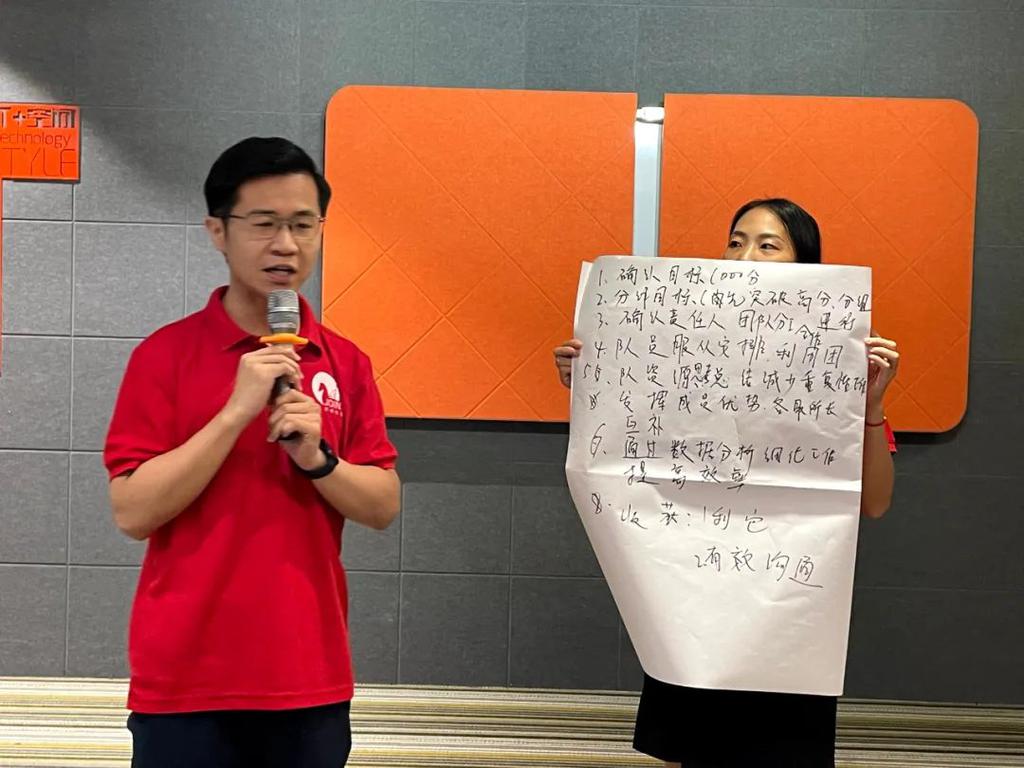 +空间
echnology
TYLE
1. 确认目标1000分
2. 分计目标、优先突破高分、分组
3. 确认责任人 团队分工 运行
合作
4. 队员服从安排、利用团
5. 队资源 总结减少重复性
发挥成员优势、各取所长
互补
6. 通过数据分析 细化工作
提高效率
8. 收获: 1 利它
2有效沟通